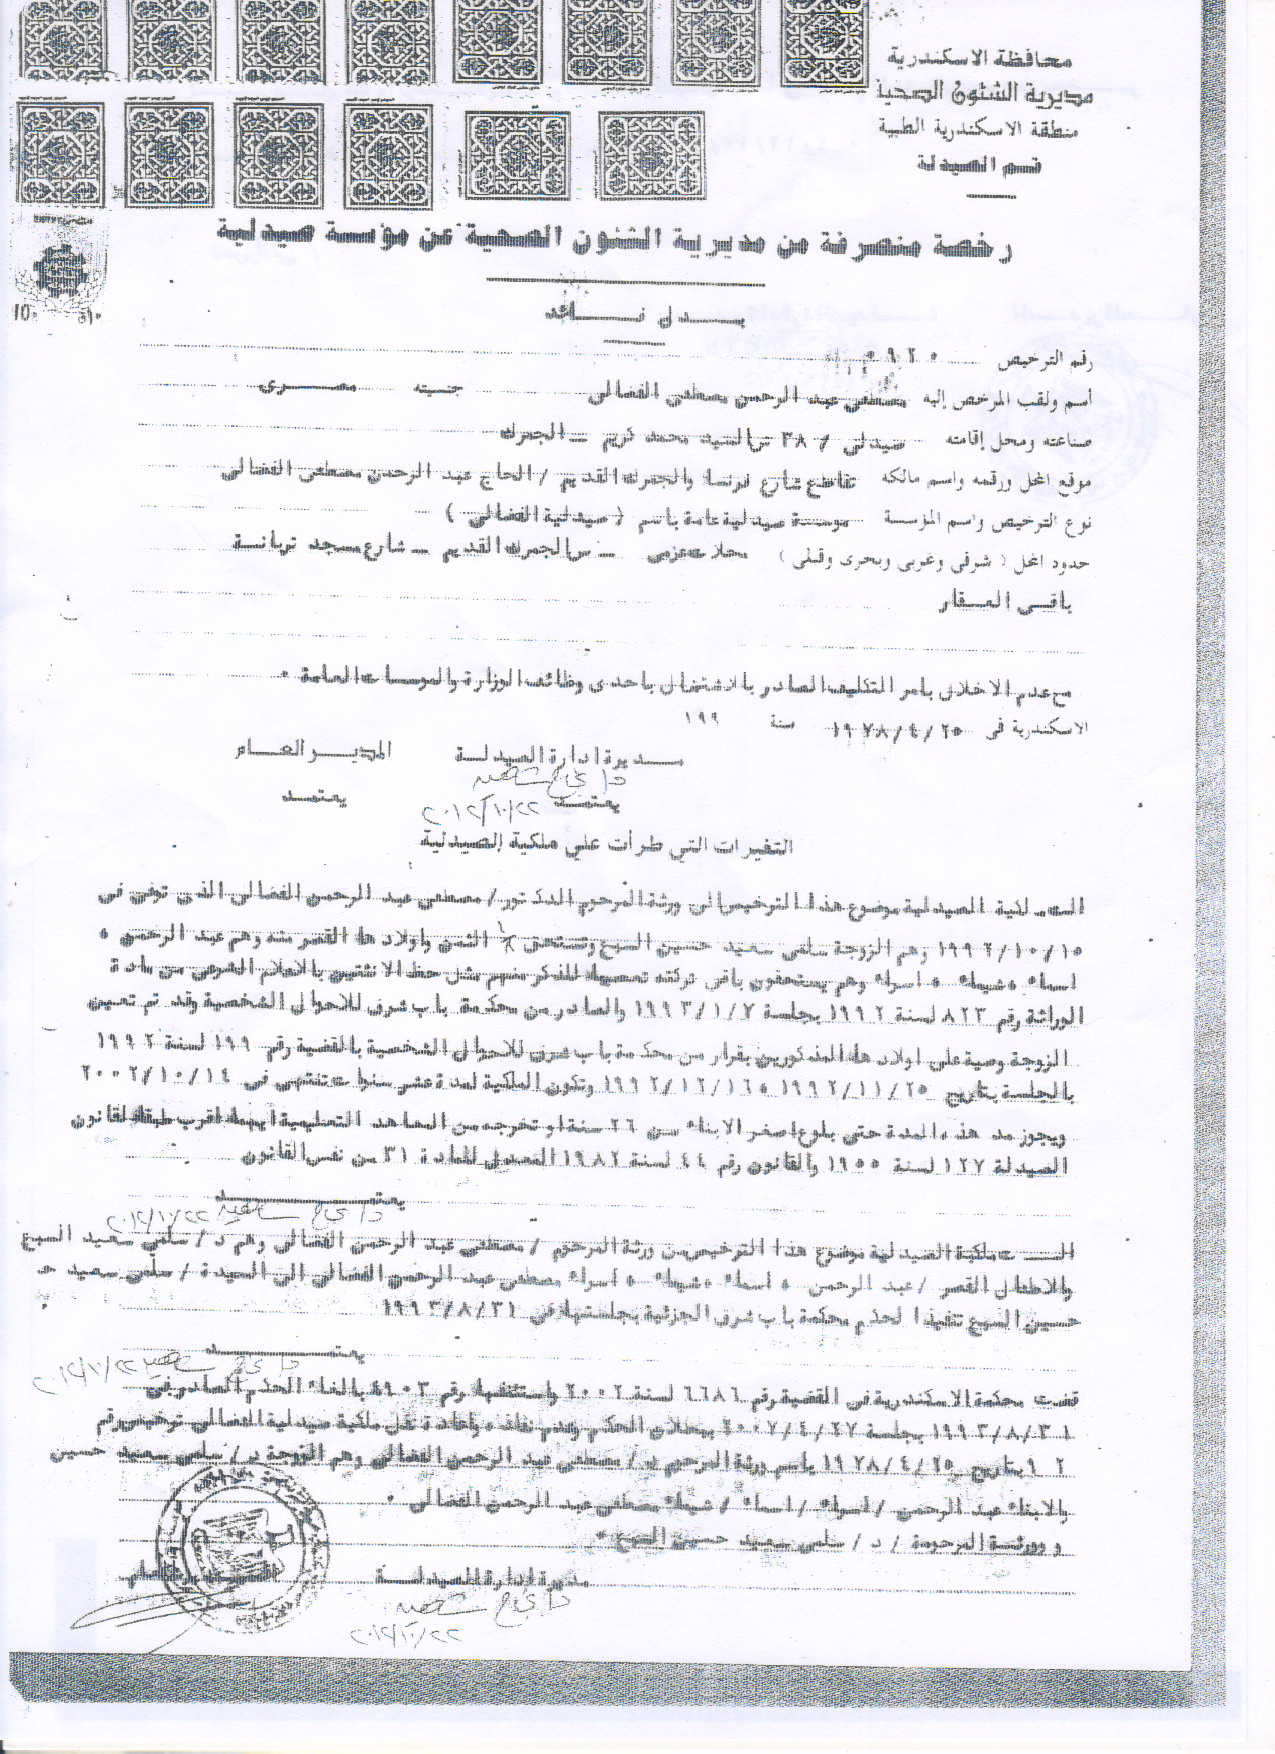 محافظة الاسكندرية
مديرية الشئون الصحية
منطقة الاسكندرية الطبية
قسم الصيدلة
رخصة منصرفة من مديرية الشئون الصحية عن مؤسسة صيدلية
بدل فاقد
رقم الترخيص ٩٢٠
أسم ولقب المرخص إليه مصطفى عبد الرحمن مصطفى الفضالى جنسيته مصرى
صناعته ومحل إقامته صيدلى / ٣٨ ش السيد محمد كريم - الجمرك
موقع المحل ورقمه واسم مالكه تقاطع شارع فرنسا والجمرك القديم / الحاج عبد الرحمن مصطفى الفضالى
نوع الترخيص واسم المؤسسة موسسة صيدلية عامة باسم ( صيدلية الفضالى )
حدود المحل ( شرقى وغربى وبحرى وقبلى ) محلات عزمى - ش الجمرك القديم - شارع مسجد تربانة
باقى العقار
مع عدم الاخلال بامر التكليف الصادر بالاشتغال باحدى وظائف الوزارة والموسسات العامة .
الاسكندرية فى ١٩٧٨/٤/٢٥ سنة ١٩٩
مديرة ادارة الصيدلة المدير العام
يعتمد يعتمد
٢٠١٢/١٠/٢٢
التغيرات التي طرأت علي ملكية الصيدلية
ملكية الصيدلية موضوع هذا الترخيص الى ورثة المرحوم الدكتور / مصطفى عبد الرحمن الفضالى الذى توفى فى
١٩٩٢/١٠/١٥ وهم الزوجة سلمى سعيد حسين السبع وتستحق الثمن واولادها القصر منه وهم عبد الرحمن ،
اسماء ، شيماء ، اسراء وهم يستحقون باقى تركته تعصيبا للذكر منهم مثل حظ الانثيين بالاعلام الشرعى من مادة
الوراثة رقم ٨٢٣ لسنة ١٩٩٢ بجلسة ١٩٩٣/١/٧ والصادر من محكمة باب شرق للاحوال الشخصية وقد تم تعيين
الزوجة وصية على اولادها المذكورين بقرار من محكمة باب شرق للاحوال الشخصية بالقضية رقم ١٩٩ لسنة ١٩٩٢
بالجلسة بتاريخ ١٩٩٢/١١/٢٥ ، ١٩٩٢/١٢/١٦ وتكون الملكية لمدة عشر سنوات تنتهى فى ٢٠٠٢/١٠/١٤
ويجوز مد هذه المدة حتى بلوغ اصغر الابناء سن ٢٦ سنة او تخرجه من المعاهد التعليمية ايهما اقرب طبقا لقانون
الصيدلة ١٢٧ لسنة ١٩٥٥ والقانون رقم ٤٤ لسنة ١٩٨٢ المعدل للمادة ٣١ من نفس القانون
يعتمد
٢٠١٢/١٠/٢٢
ملكية الصيدلية موضوع هذا الترخيص من ورثة المرحوم / مصطفى عبد الرحمن الفضالى وهم د / سلمي سعيد السبع
والاطفال القصر / عبد الرحمن ، اسماء ، شيماء ، اسراء مصطفى عبد الرحمن الفضالى الى السيدة / سلمى سعيد
حسين السبع تنفيذا لحكم محكمة باب شرق الجزئية بجلستها فى ١٩٩٣/٨/٣١
يعتمد
٢٠١٢/١٠/٢٢
قضت محكمة الاسكندرية فى القضية رقم ٦٦٨٦ لسنة ٢٠٠٢ واستئنافها رقم ٤٩٠٣ بالغاء الحكم الصادر فى
١٩٩٣/٨/٣١ بجلسة ٢٠٠٧/٤/٢٧ الحكم وعدم نفاذه واعادة نقل ملكية صيدلية الفضالى ترخيص رقم
بتاريخ ١٩٧٨/٤/٢٥ باسم ورثة المرحوم د / مصطفى عبد الرحمن الفضالى وهم الزوجة د / سلمى سعيد حسين
والابناء عبد الرحمن / اسراء / اسماء / شيماء مصطفى عبد الرحمن الفضالى .
وورثة المرحومة / د / سلمى سعيد حسين السبع .
مديرة ادارة الصيدلة
٢٠١٢/١٠/٢٢